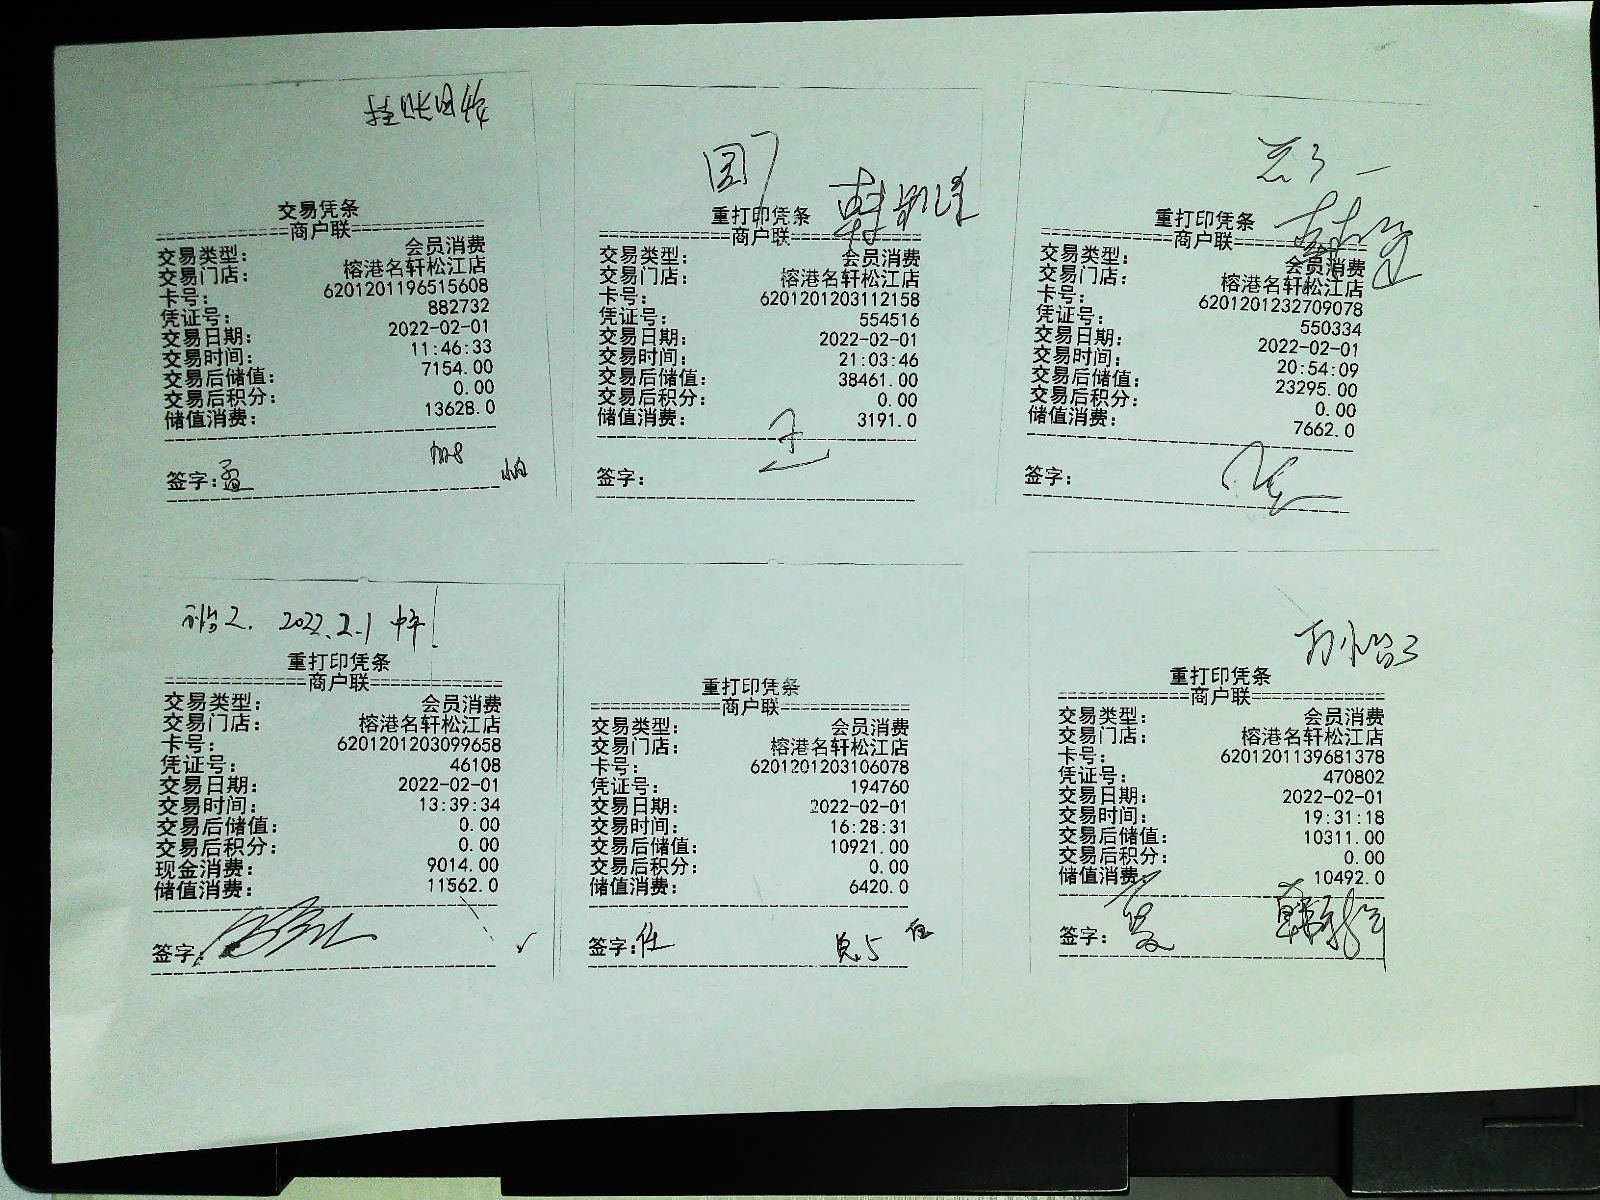 交易凭条
商户联
交易类型: 会员消费
交易门店: 榕港名轩松江店
卡号: 6201201196515608
凭证号: 882732
交易日期: 2022-02-01
交易时间: 11:46:33
交易后储值: 7154.00
交易后积分: 0.00
储值消费: 13628.0
签字:
重打印凭条
商户联
交易类型: 会员消费
交易门店: 榕港名轩松江店
卡号: 6201201203112158
凭证号: 554516
交易日期: 2022-02-01
交易时间: 21:03:46
交易后储值: 38461.00
交易后积分: 0.00
储值消费: 3191.0
签字:
重打印凭条
商户联
交易类型: 会员消费
交易门店: 榕港名轩松江店
卡号: 6201201232709078
凭证号: 550334
交易日期: 2022-02-01
交易时间: 20:54:09
交易后储值: 23295.00
交易后积分: 0.00
储值消费: 7662.0
签字:
2022.2.1 中午
重打印凭条
商户联
交易类型: 会员消费
交易门店: 榕港名轩松江店
卡号: 6201201203099658
凭证号: 46108
交易日期: 2022-02-01
交易时间: 13:39:34
交易后储值: 0.00
交易后积分: 0.00
现金消费: 9014.00
储值消费: 11562.0
签字:
重打印凭条
商户联
交易类型: 会员消费
交易门店: 榕港名轩松江店
卡号: 6201201203106078
凭证号: 194760
交易日期: 2022-02-01
交易时间: 16:28:31
交易后储值: 10921.00
交易后积分: 0.00
储值消费: 6420.0
签字:任
重打印凭条
商户联
交易类型: 会员消费
交易门店: 榕港名轩松江店
卡号: 6201201139681378
凭证号: 470802
交易日期: 2022-02-01
交易时间: 19:31:18
交易后储值: 10311.00
交易后积分: 0.00
储值消费: 10492.0
签字: